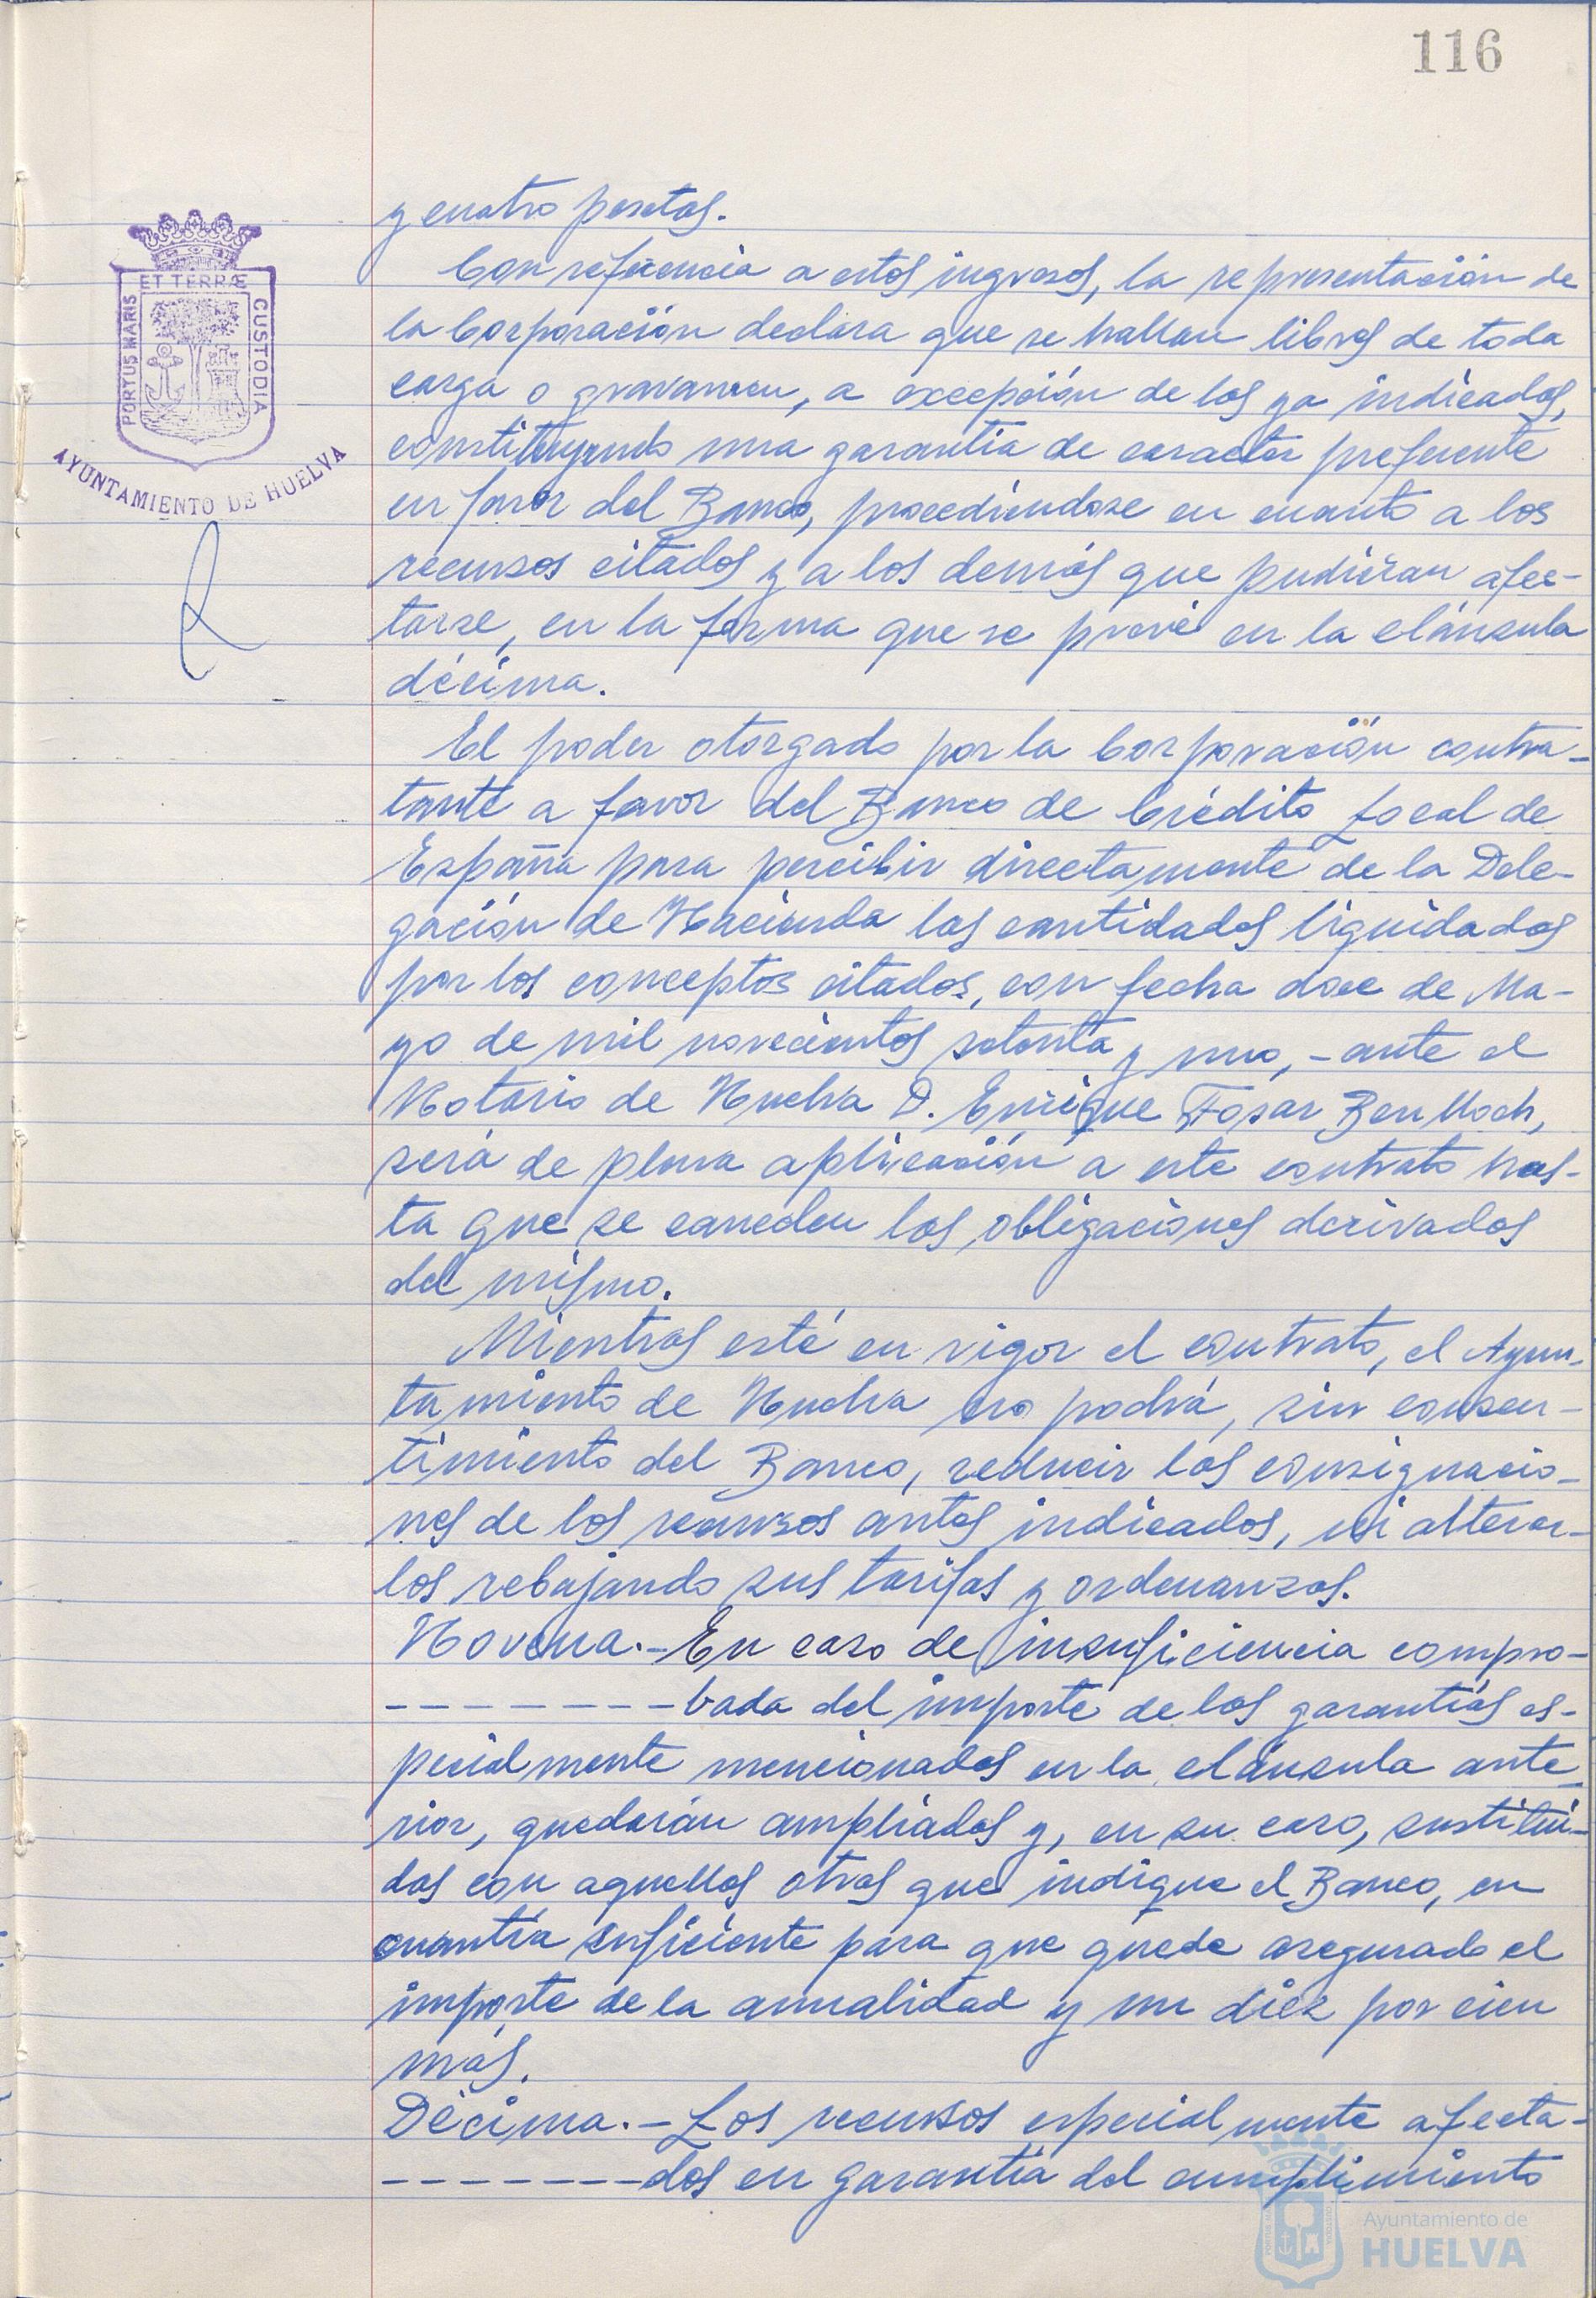 116
y cuatro pesetas.
Con referencia a estos ingresos, la representación de
la Corporación declara que se hallan libres de toda
carga o gravamen, a excepción de los ya indicados,
constituyendo una garantía de caracter preferente
en favor del Banco, procediendose en cuanto a los
recursos citados y a los demás que pudieran afec-
tarse, en la forma que se prevé en la cláusula
décima.
El poder otorgado por la Corporación contra-
tante a favor del Banco de Crédito Local de
España para percibir directamente de la Dele-
gación de Hacienda las cantidades liquidadas
por los conceptos citados, con fecha doce de Ma-
yo de mil novecientos setenta y uno,-ante el
Notario de Huelva D. Enrique Fosar Benlloch,
será de plena aplicación a este contrato has-
ta que se cancelen las obligaciones derivadas
del mismo.
Mientras esté en vigor el contrato, el Ayun-
tamiento de Huelva no podrá, sin consen-
timiento del Banco, reducir las consignacio-
nes de los recursos antes indicados, ni alterar-
los rebajando sus tarifas y ordenanzas.
Novena.-En caso de insuficiencia compro-
-------bada del importe de las garantías es-
pecialmente mencionadas en la cláusula ante-
rior, quedarán ampliadas y, en su caso, sustitui-
das con aquellas otras que indique el Banco, en
cuantía suficiente para que quede asegurado el
importe de la anualidad y un diez por cien
más.
Décima.-Los recursos especialmente afecta-
-------dos en garantía del cumplimiento
PORTUS MARIS
ET TERRÆ
CUSTODIA
AYUNTAMIENTO DE HUELVA
Ayuntamiento de
HUELVA